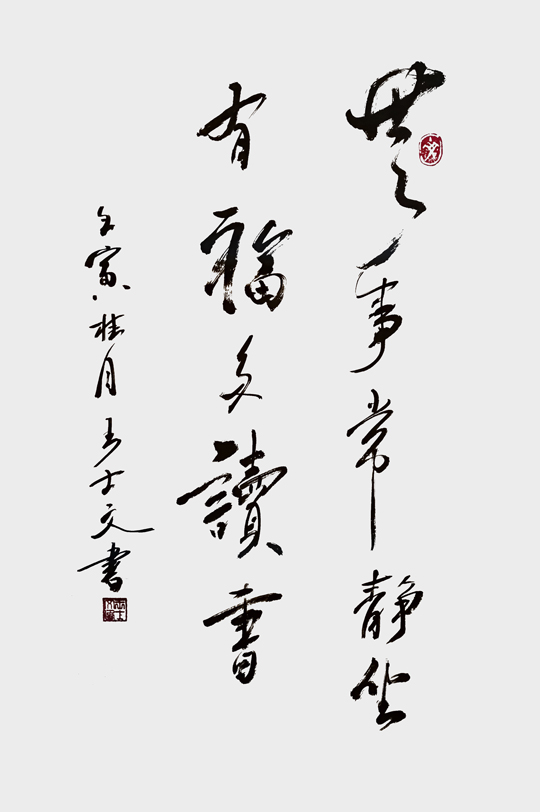 無事常静坐
有福多讀書
壬寅桂月王士文書